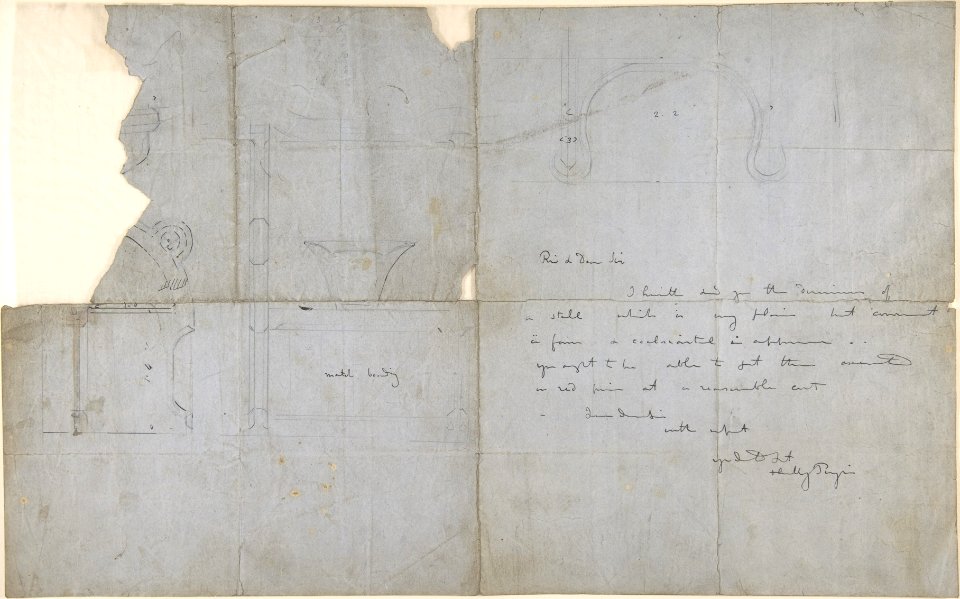 2. 2
Rd & Dear Sir
I herewith send you the dimensions of
a stall which is very plain but convenient
in form & ecclesiastical in appearance . .
you ought to be able to get them executed
in red pine at a reasonable cost
Dear Sir
with respect
match boarding